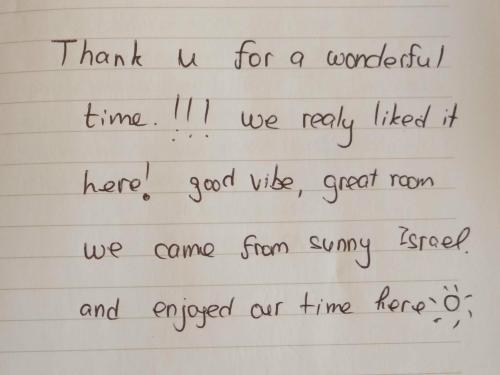 Thank u for a wonderful
time. !!! we realy liked it
here! good vibe, great room
we came from sunny Israel.
and enjoyed our time here